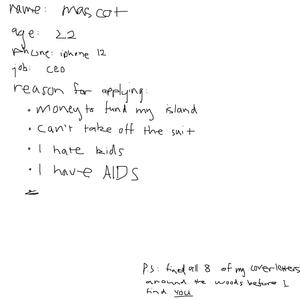 name: mascot
age: 22
phone: iphone 12
job: CEO
reason for applying:
• money to fund my island
• can't take off the suit
• I hate kids
• I have AIDS
PS: find all 8 of my coverletters
around the woods before I
find you